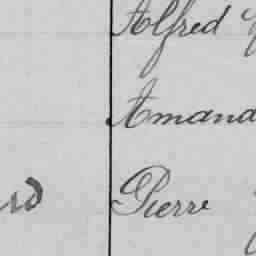 Alfred
Amand
Pierre